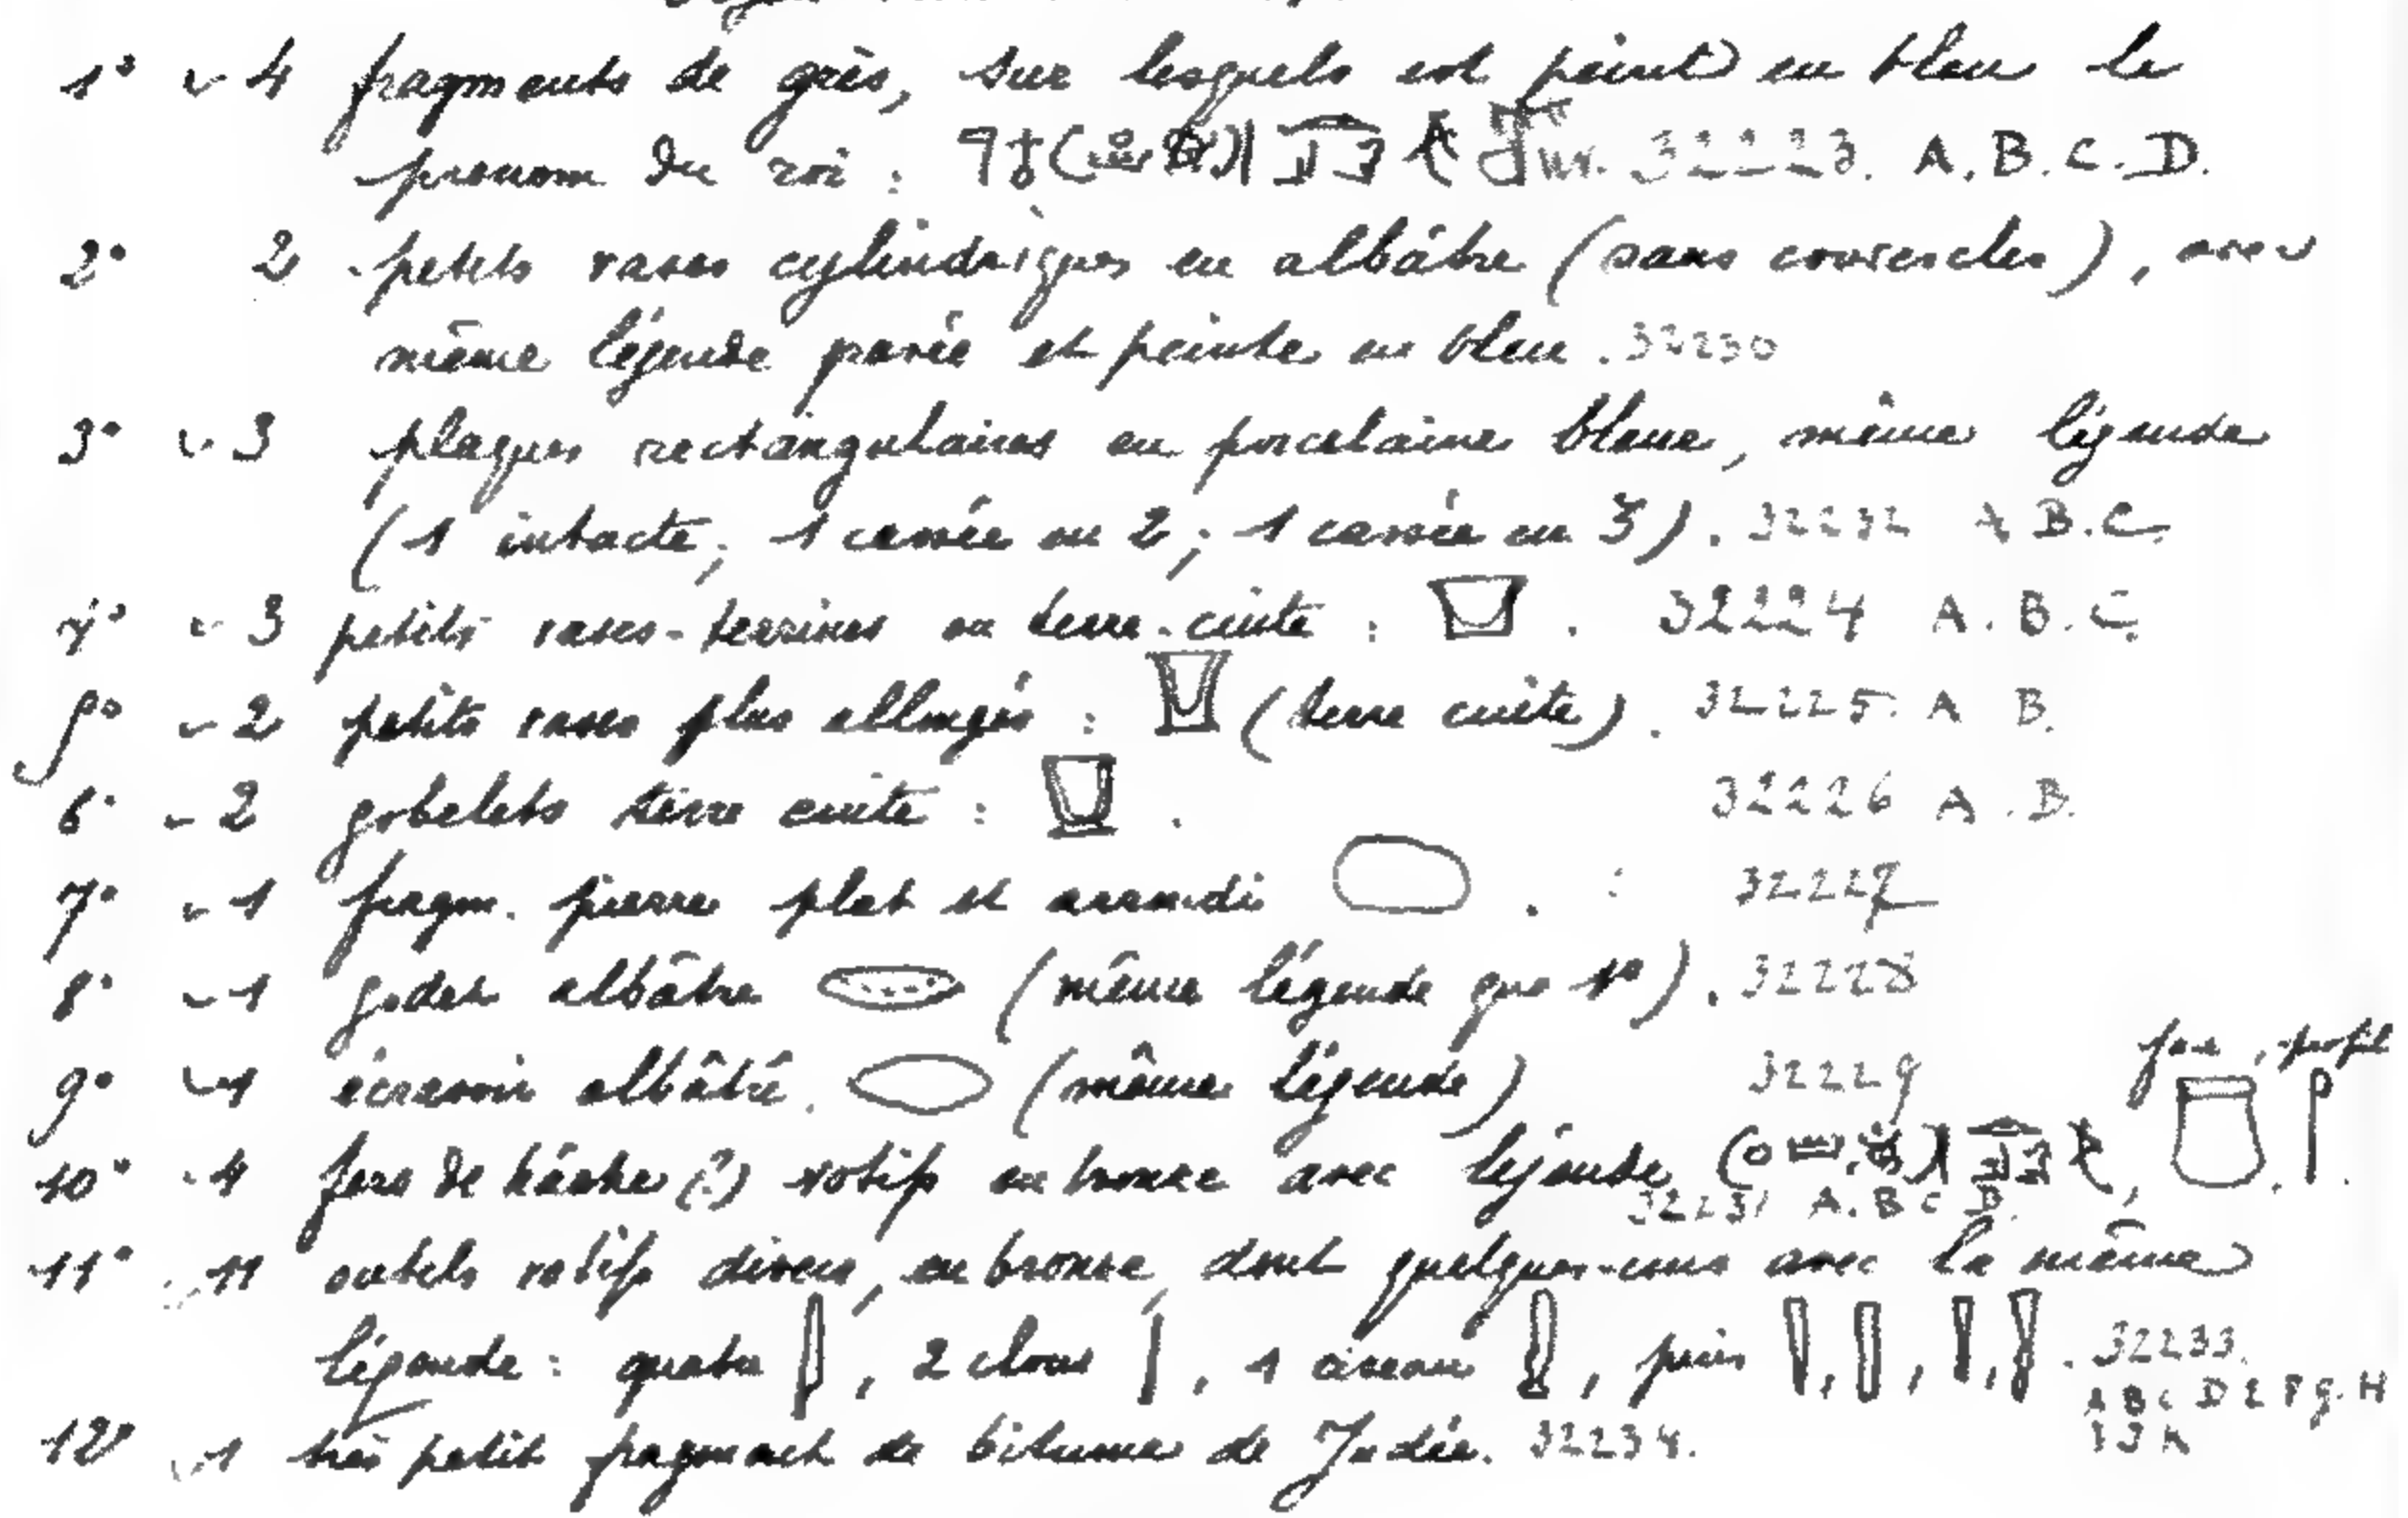 1° 4 fragments de grès, sur lesquels est peint en bleu le
prénom du roi : 32223. A. B. C. D.
2° 2 petits vases cylindriques en albâtre (sans couvercles), avec
même légende gravée et peinte en bleu. 32230
3° 3 plaques rectangulaires en porcelaine bleue, même légende
(1 intacte, 1 cassée en 2; 1 cassée en 3). 32232 A B.C.
4° 3 petits vases-terrines en terre-cuite : . 32224 A. B. C.
5° 2 petits vases plus allongés : (terre cuite). 32225. A B.
6° 2 gobelets terre cuite : . 32226 A. B.
7° 1 fragm. pierre plat et arrondi . 32227
8° 1 godet albâtre (même légende que 1°). 32228
9° 1 albâtre. (même légende) 32229
face, profil
10° 4 fers de hache (?) votifs en bronze avec légende
32231 A. B C D.
11° 11 outils votifs divers, en bronze, dont quelques-uns avec la même
légende : quatre , 2 clous , 1 ciseau , puis , , , . 32233.
A B C D E F g. H
I J K
12° 1 très petit fragment de bitume de Judée. 32234.